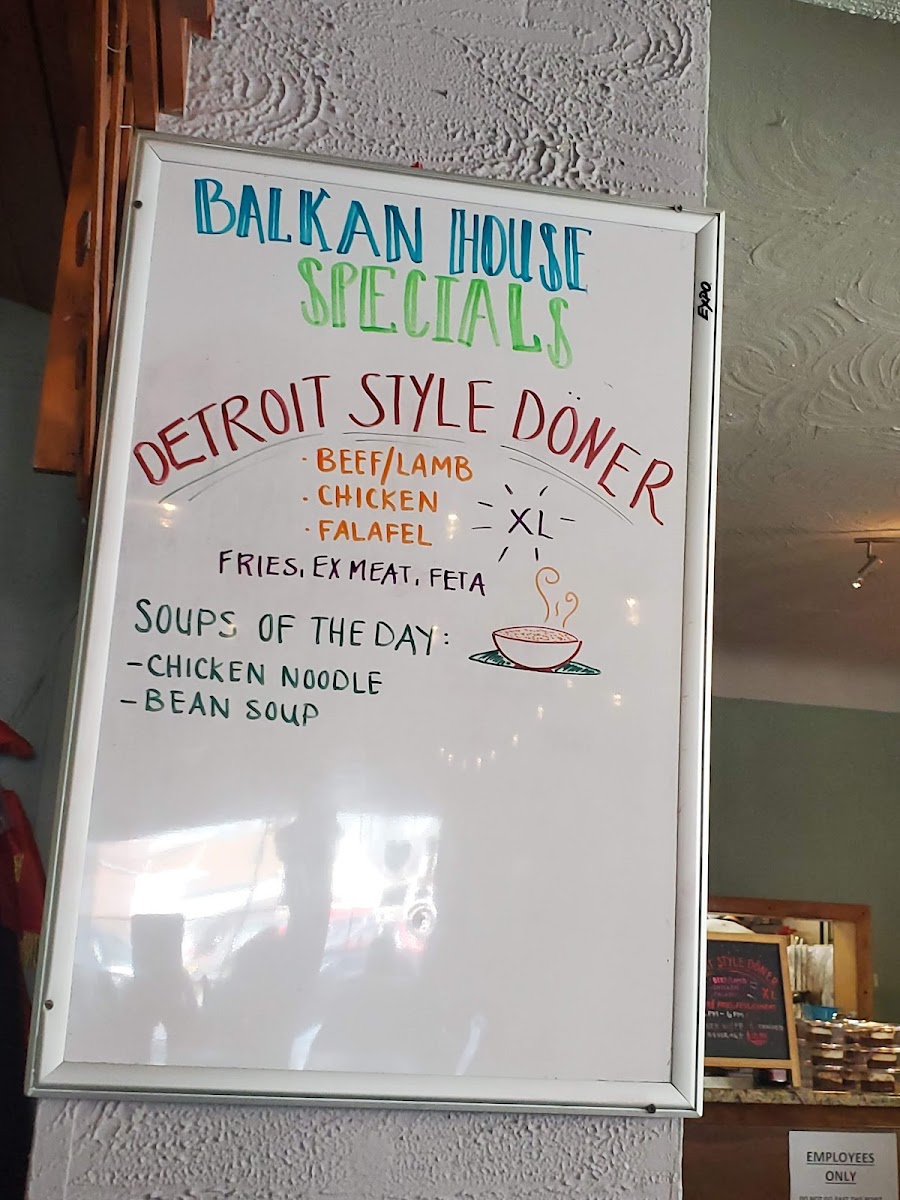 BALKAN HOUSE
SPECIALS
DETROIT STYLE DÖNER
· BEEF/LAMB
· CHICKEN
· FALAFEL
XL
FRIES, EX MEAT, FETA
SOUPS OF THE DAY:
-CHICKEN NOODLE
-BEAN SOUP
EXPO
STYLE DÖNER
BEEF/LAMB
XL
EMPLOYEES
ONLY